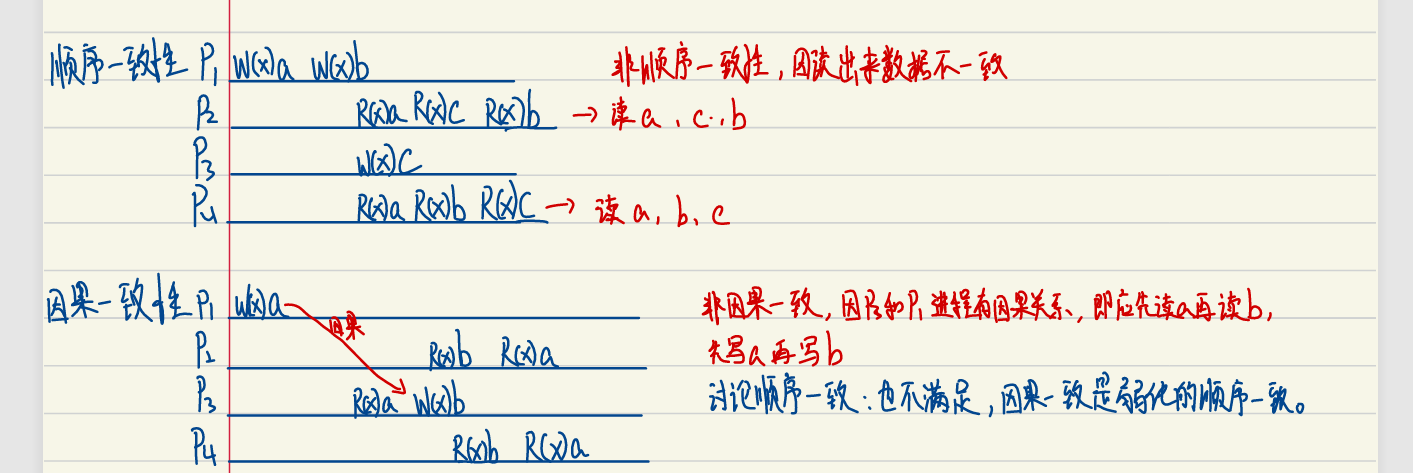 顺序一致性 P1 W(x)a W(x)b 非顺序一致性,因读出来数据不一致
P2 R(x)a R(x)c R(x)b → 读a、c、b
P3 W(x)C
P4 R(x)a R(x)b R(x)C → 读a、b、c
因果一致性 P1 W(x)a 非因果一致,因P3和P1进程有因果关系,即应先读a再读b,
因果
P2 R(x)b R(x)a 先写a再写b
P3 R(x)a W(x)b 讨论顺序一致:也不满足,因果一致是弱化的顺序一致。
P4 R(x)b R(x)a